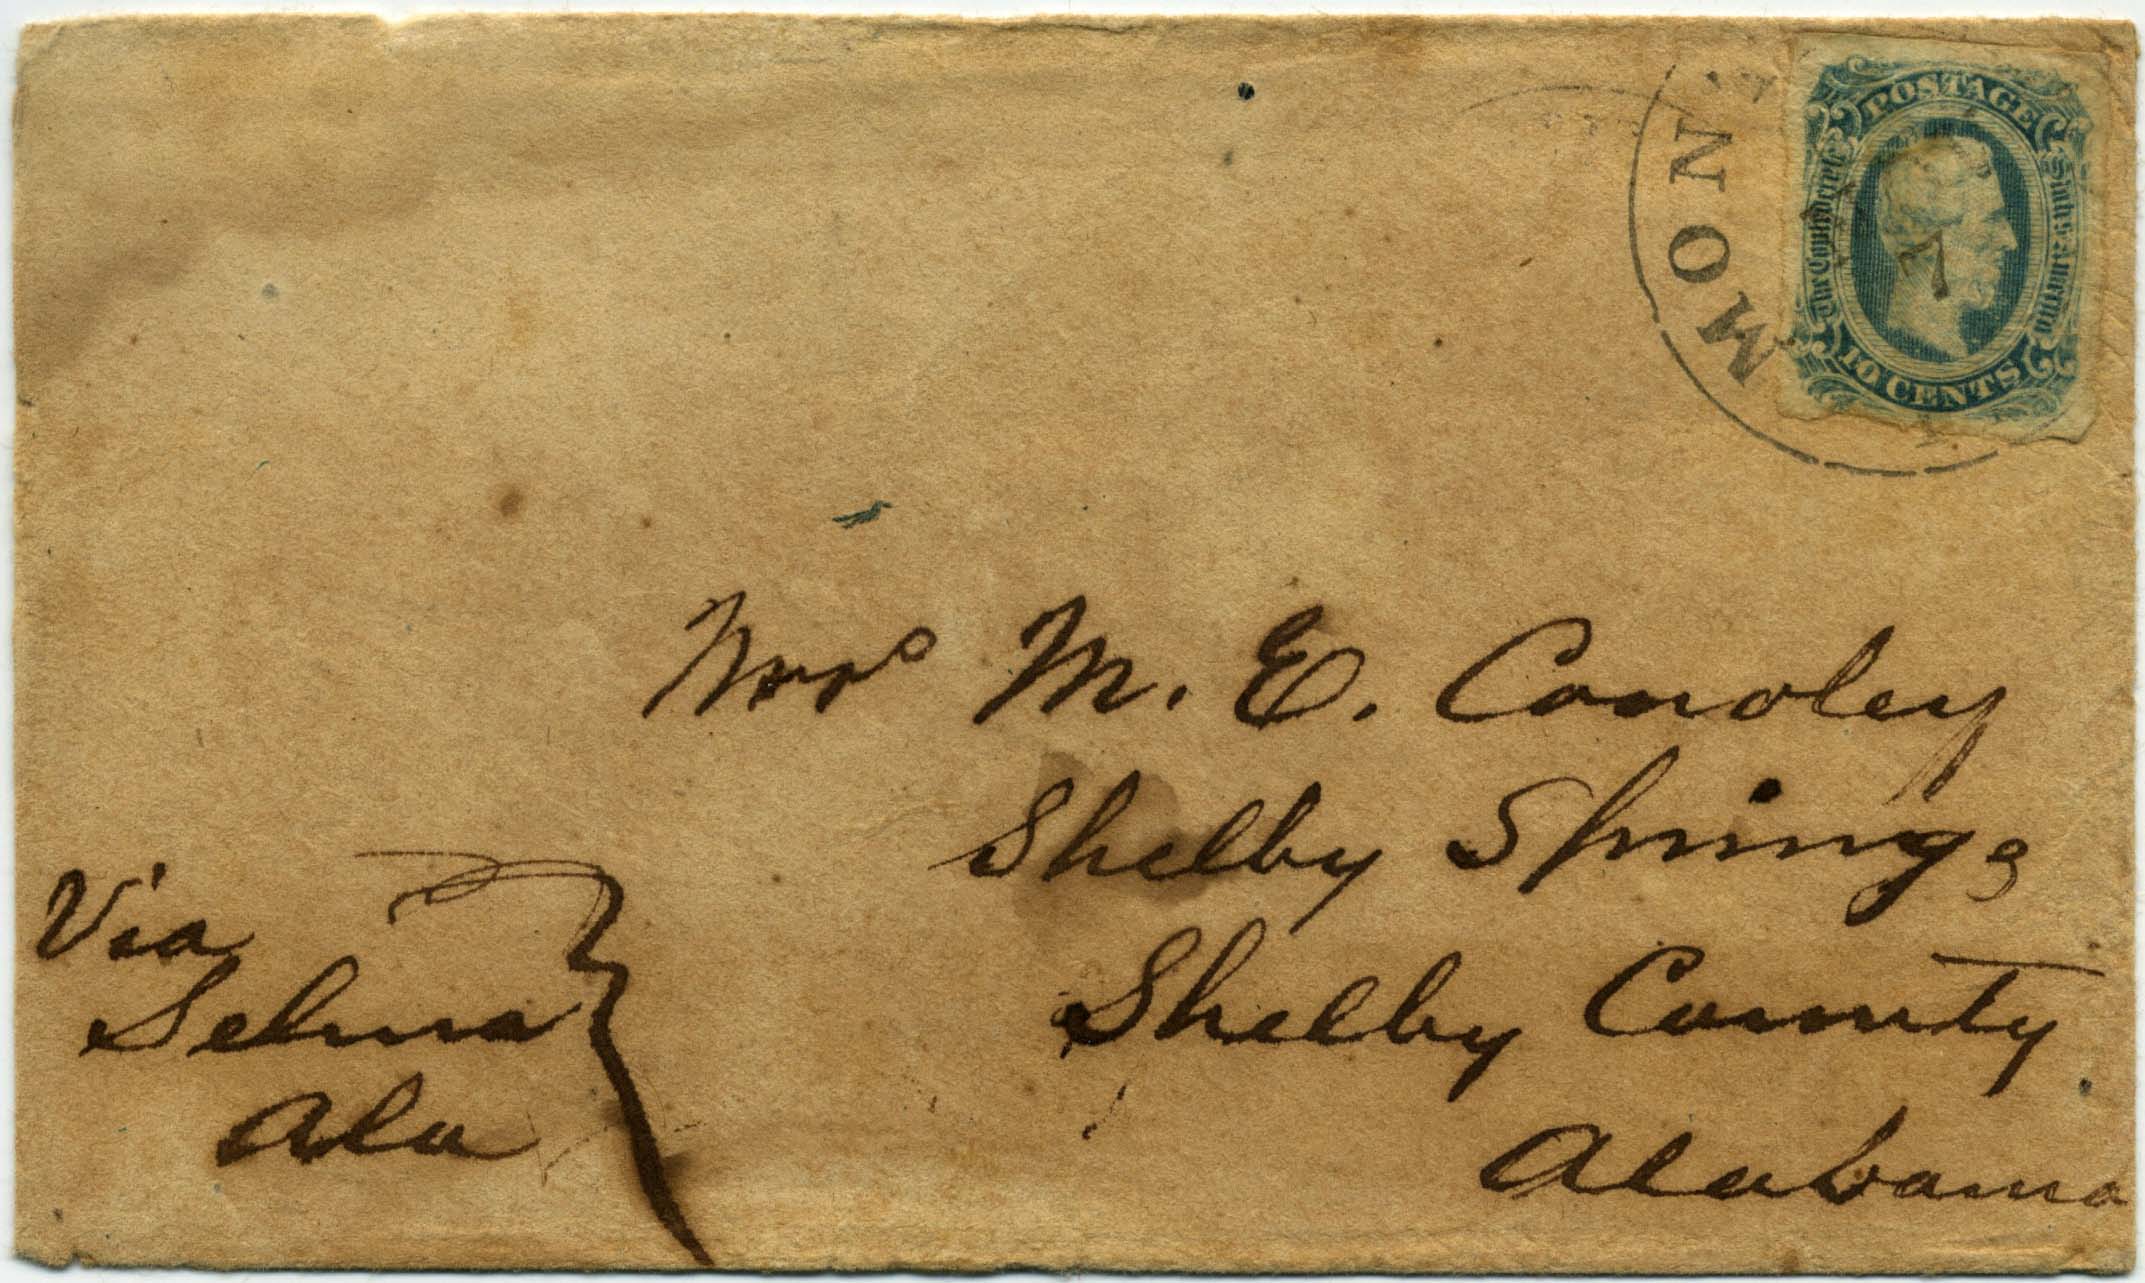 MON
POSTAGE
The Confederate States of America
10 CENTS
7
Mrs M. E. Conoley
Shelby Springs
Shelby County
Alabama
Via
Selma
Ala